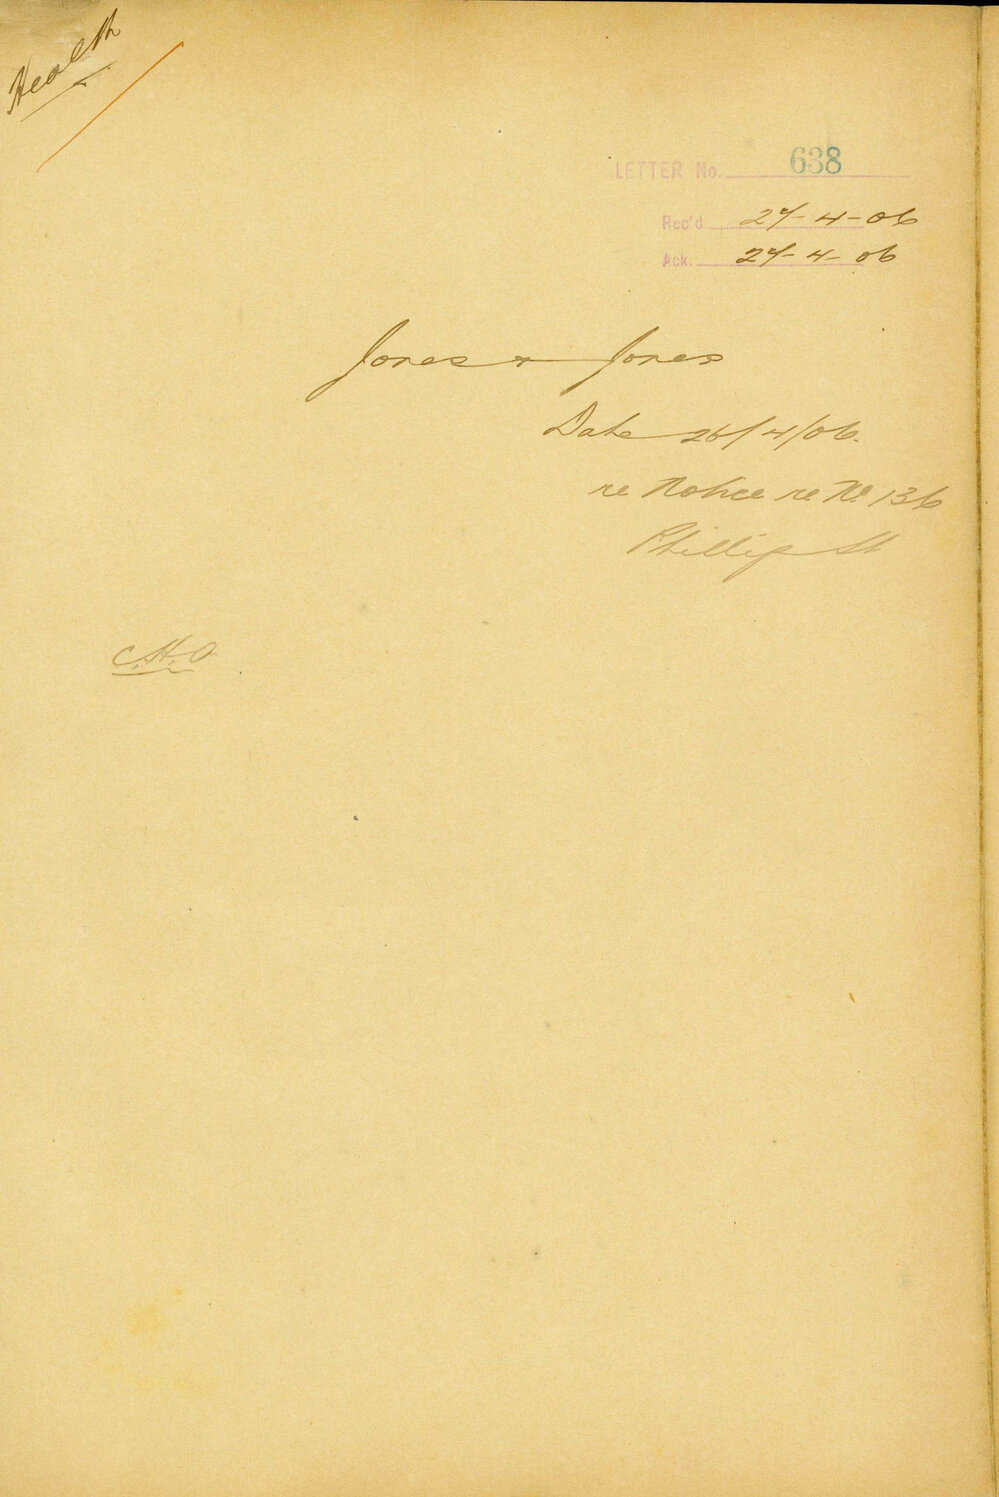 Health
LETTER No. 638
Rec'd 27-4-06
Ack. 27-4-06
Jones & Jones
Date 26/4/06.
re Notice re No. 136
Phillip St
C.H.O